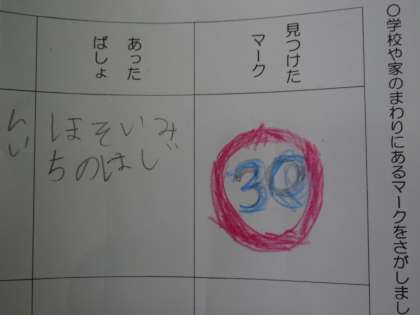 ○学校や家のまわりにあるマークをさがしまし
見つけた
マーク
30
あった
ばしょ
ほそいみ
ちのはじ